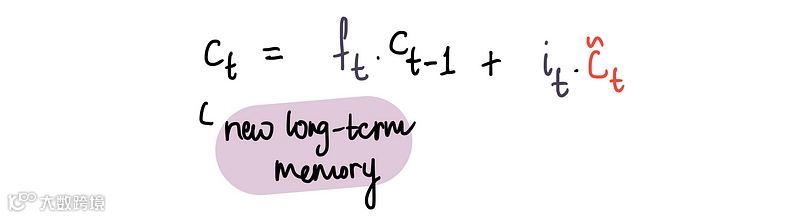 Cₜ = fₜ · Cₜ₋₁ + iₜ · C̃ₜ
new long-term
memory
大数跨境